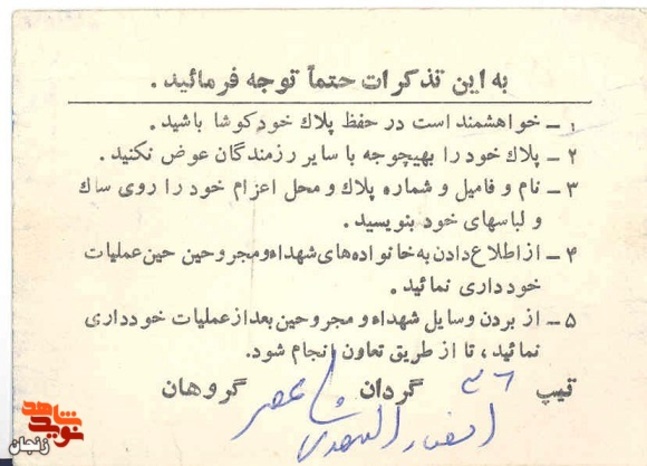 به این تذکرات حتماً توجه فرمائید .
۱ ـ خواهشمند است در حفظ پلاك خودکوشا باشید .
۲ ـ پلاك خود را بهیچوجه با سایر رزمندگان عوض نکنید .
۳ ـ نام و فامیل و شماره پلاك و محل اعزام خود را روی ساك
و لباسهای خود بنویسید .
۴ ـ ازاطلاع دادن به خانواده های شهداء ومجروحین حین عملیات
خودداری نمائید .
۵ ـ از بردن وسایل شهداء و مجروحین بعداز عملیات خودداری
نمائید ، تا از طریق تعاون انجام شود.
تیپ ۳۶ گردان گروهان
انصار المهدی
شاهد
نوید
زنجان